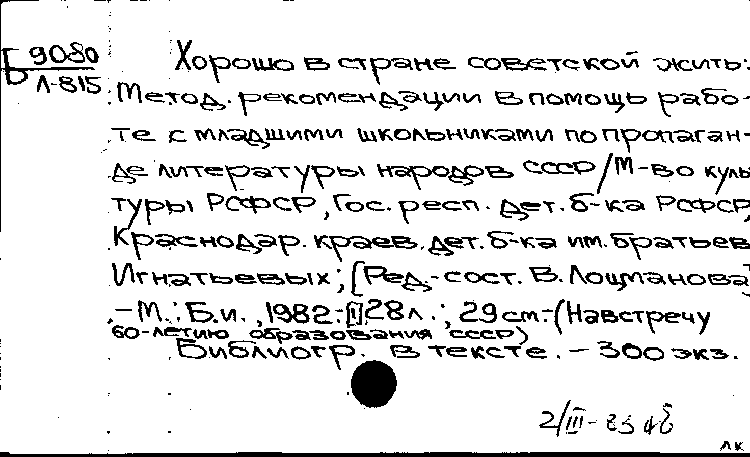 Б 9080
Л-815
Хорошо в стране советской жить:
Метод. рекомендации в помощь рабо-
те с младшими школьниками по пропаган-
де литературы народов СССР/М-во куль
туры РСФСР, Гос. респ. дет. б-ка РСФСР,
Краснодар. краев. дет. б-ка им. братьев
Игнатьевых; [Ред.-сост. В. Лоцманова]
.-М.: Б.и., 1982.-[1],28л.; 29см.-(Навстречу
60-летию образования СССР)
Библиогр. в тексте. - 300 экз.
2/III-83
лк